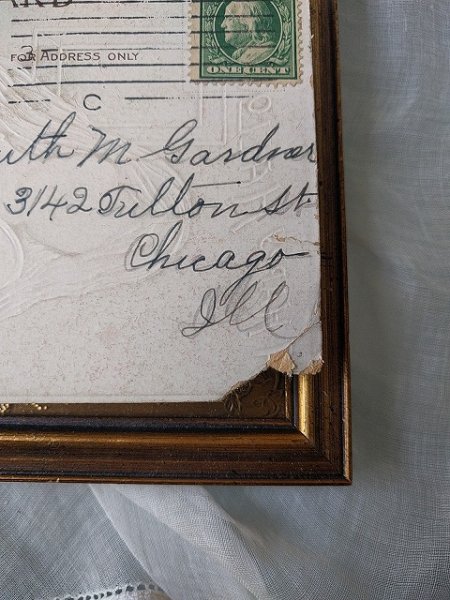 ARD
3
FOR ADDRESS ONLY
ONE CENT
C
uth M Gardner
3142 Fulton St
Chicago
Ill